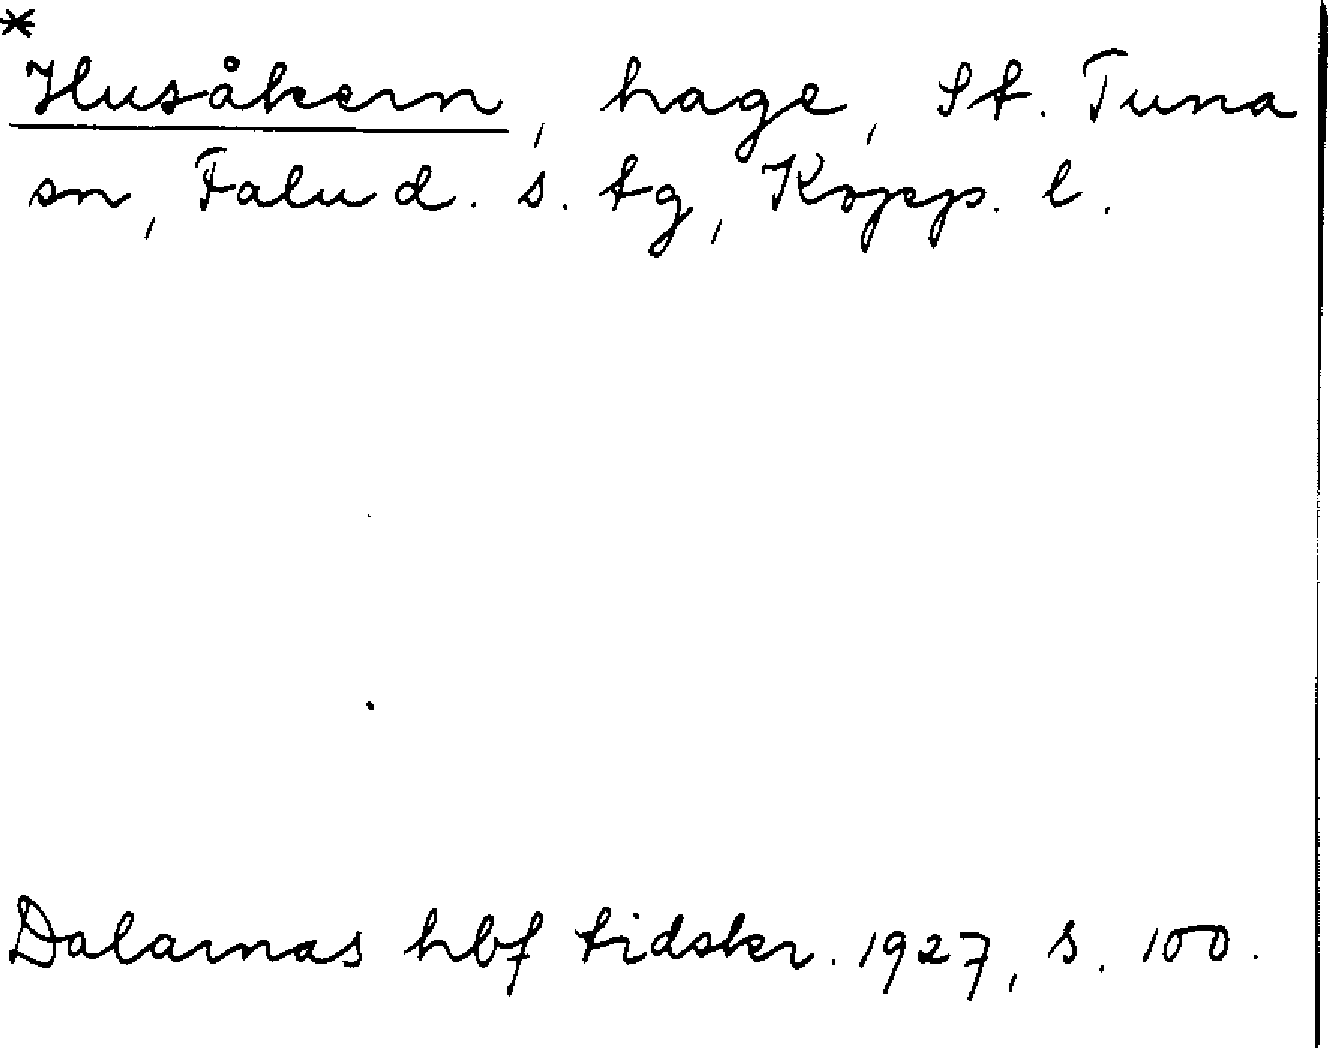 *
Husåkern, hage, St. Tuna
sn, Falu d. s. tg, Kopp. l.
Dalarnas hbf tidskr. 1927, s. 100.